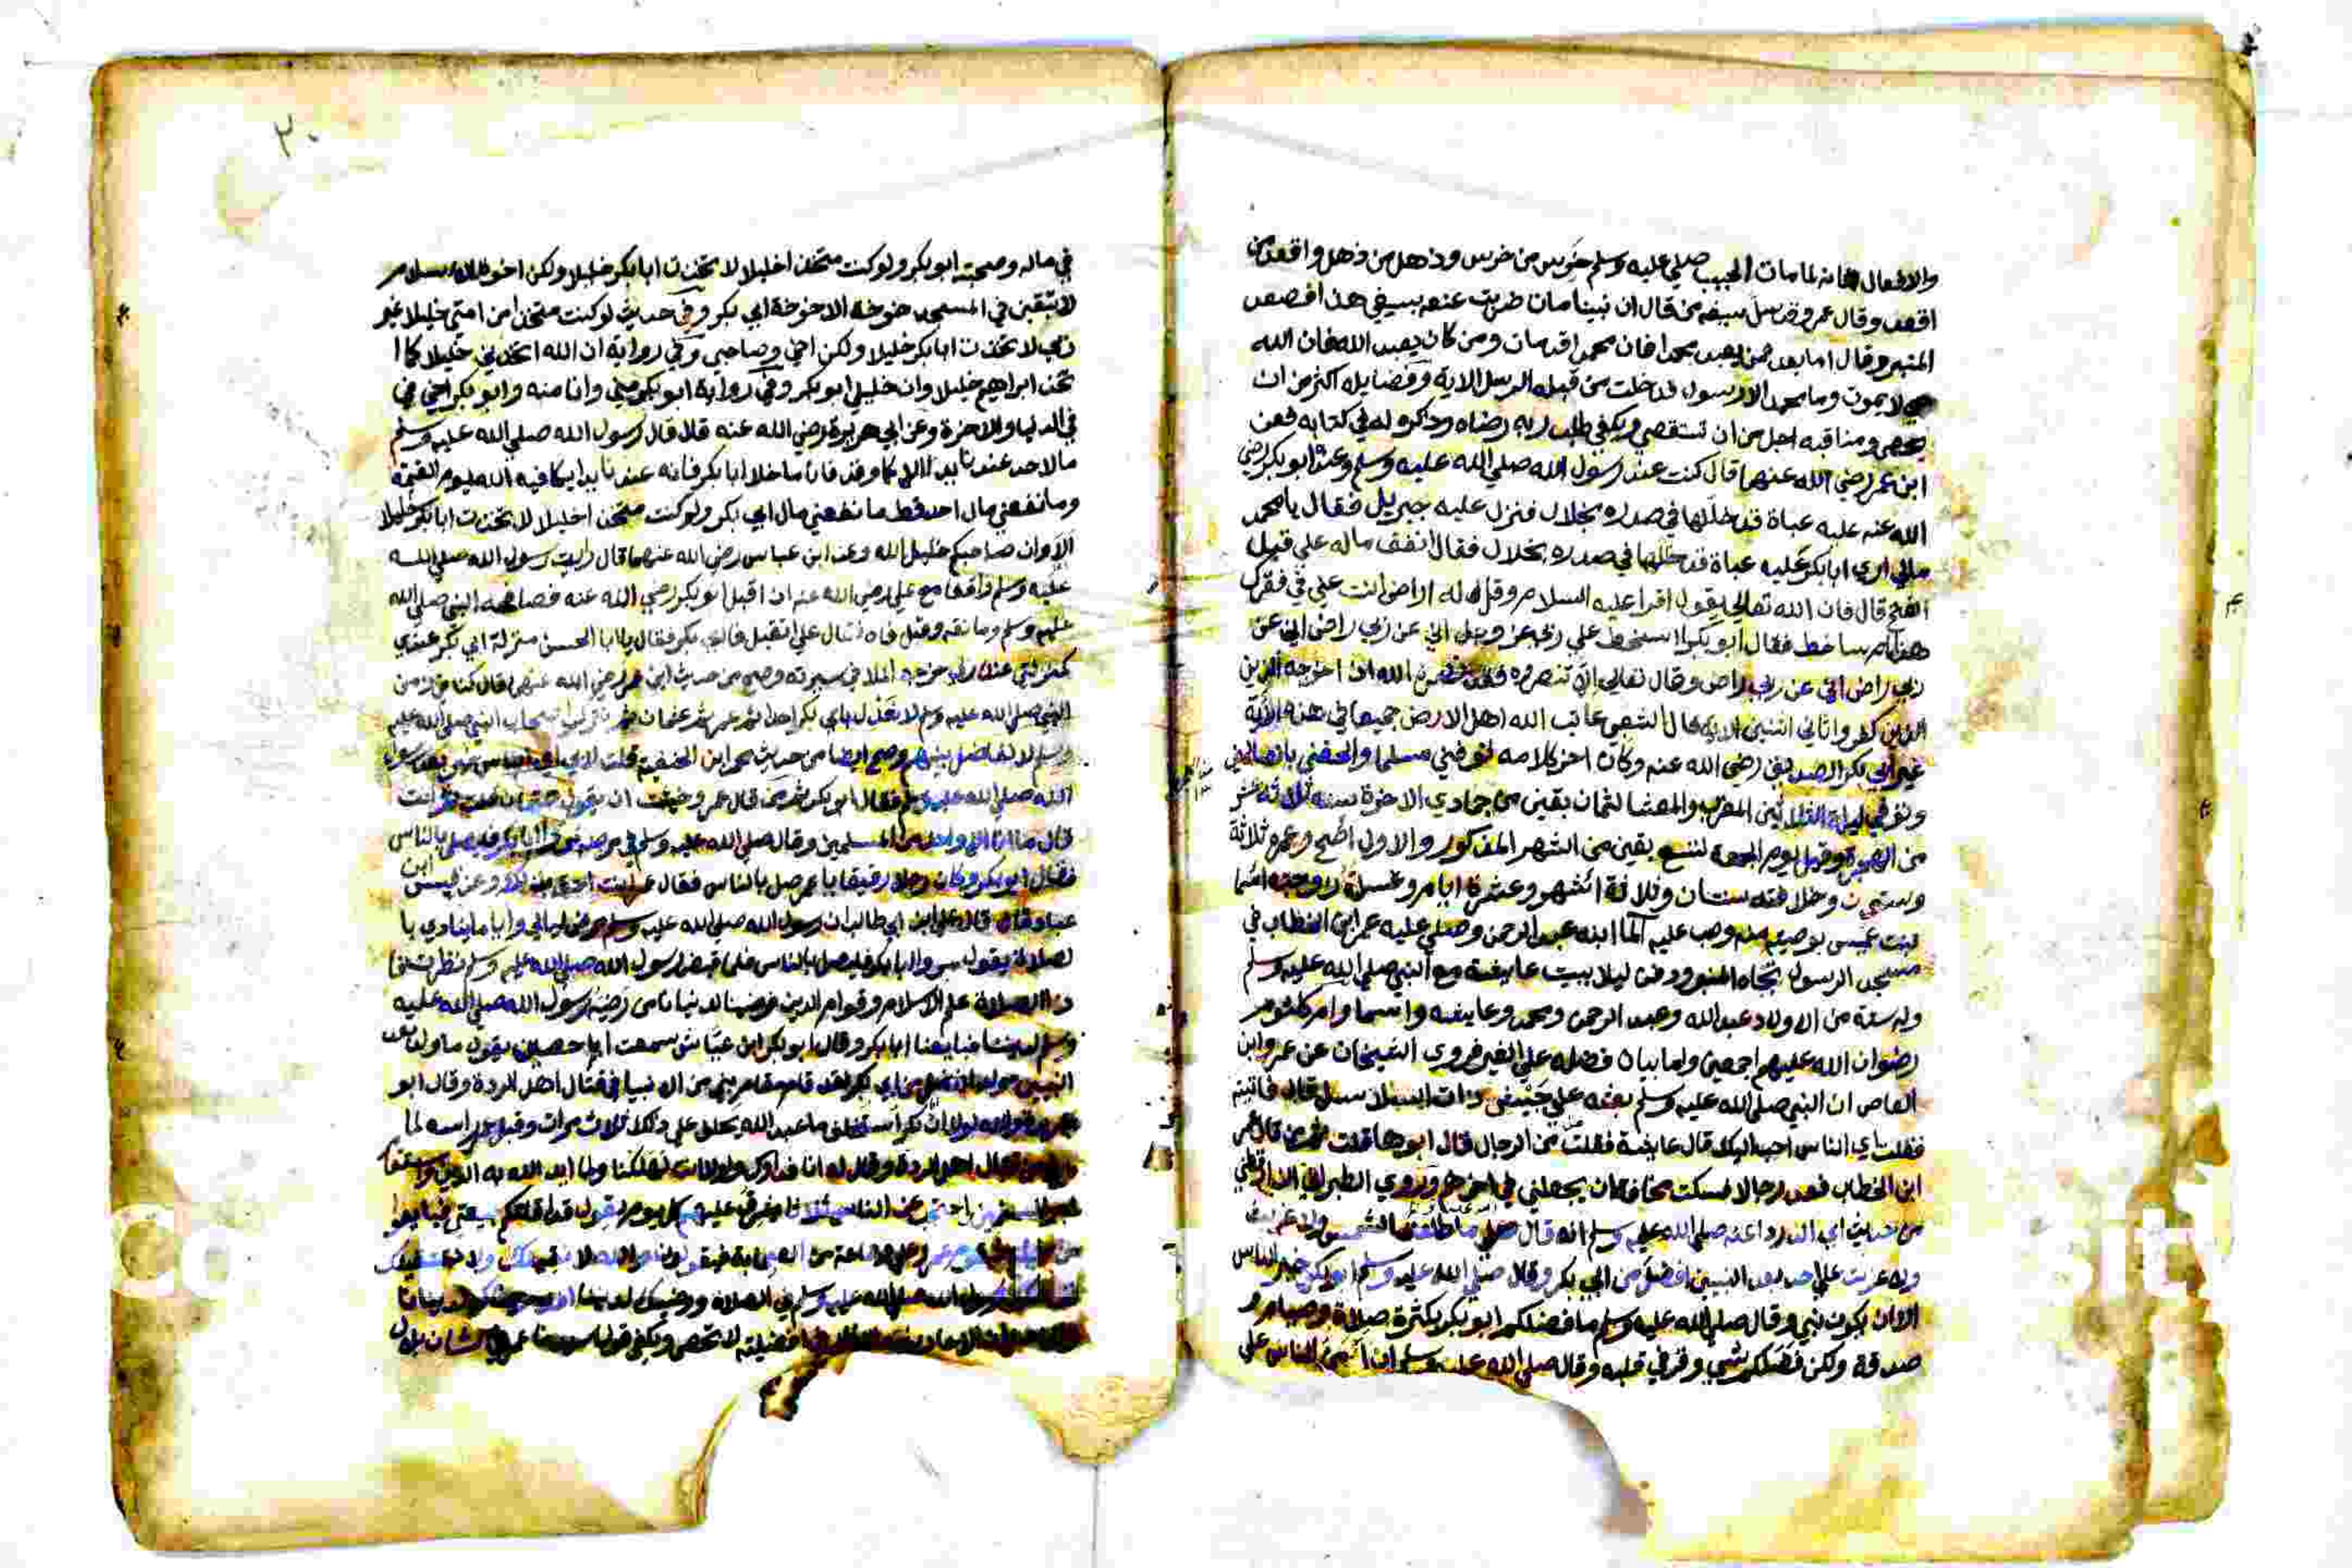 والافعال فانه لما مات الحبيب صلي عليه وسلم خرس من خرس وذهل من ذهل واقعد من
اقعد وقال عمر وقد سل سيفه من قال ان نبينا مات ضربت عنقه بسيفي هذا فصعد
المنبر وقال اما بعد فمن يعبد محمدا فان محمدا قد مات ومن كان يعبد الله فان الله
حي لا يموت وما محمد الا رسول قد خلت من قبله الرسل الاية وفضايله اكثر من ان
تحصى ومناقبه اجل من ان تستقصي ويكفي طلب ربه رضاه وذكره له في كتابه فعن
ابن عمر رضي الله عنهما قال كنت عند رسول الله صلي الله عليه وسلم وعنده ابو بكر رضي
الله عنه عليه عباة قد خللها في صدره بخلال فنزل عليه جبريل فقال يا محمد
مالي اري ابا بكر عليه عباة قد خللها في صدره بخلال فقال انفق ماله علي قبل
الفتح قال فان الله تعالي يقول اقرا عليه السلام وقل له اراض انت علي في فقرك
هذا ام ساخط فقال ابو بكر ا اسخط علي ربي عز وجل اني عن ربي راض اني عن
ربي راض اني عن ربي راض وقال تعالي الا تنصروه فقد نصره الله اذ اخرجه الذين
الذين كفروا ثاني اثنين الاية قال الشعبي عاتب الله اهل الارض جميعا في هذه الاية
غير ابي بكر الصديق رضي الله عنه وكان اخر كلامه توفني مسلما والحقني بالصالحين
وتوفي ليلة الثلاثا بين المغرب والعشا لثمان بقين من جمادي الاخرة سنة ثلاثة عشر
من الهجرة وقيل يوم الجمعة لتسع بقين من الشهر المذكور والاول اصح وعمره ثلاثة
وستين وخلافته سنتان وثلاثة اشهر وعشرة ايام وغسلته زوجته اسما
بنت عميس بوصية منه وصب عليه الما ابنه عبد الرحمن وصلي عليه عمر ابن الخطاب في
مسجد الرسول تجاه المنبر ودفن ليلا ببيت عايشة مع النبي صلي الله عليه وسلم
وله ستة من الاولاد عبد الله وعبد الرحمن ومحمد وعايشه واسما وام كلثوم
رضوان الله عليهم اجمعين واما بيان فضله علي الغير فروي الشيخان عن عمرو ابن
العاص ان النبي صلي الله عليه وسلم بعثه علي جيش ذات السلاسل قال فاتيته
فقلت اي الناس احب اليك قال عايشة فقلت من الرجال قال ابوها قلت ثم من قال عمر
ابن الخطاب فعد رجالا فسكت مخافة ان يجعلني في اخرهم وروي الطبراني
من حديث ابي الدردا عنه صلي الله عليه وسلم انه قال ما طلعت الشمس ولا غربت
ولا غربت علي احد بعد النبيين افضل من ابي بكر وقال صلي الله عليه وسلم ابو بكر خير الناس
الا ان يكون نبي وقال صلي الله عليه وسلم ما فضلكم ابو بكر بكثرة صلاة وصيام و
صدقة ولكن فضلكم بشي وقر في قلبه وقال صلي الله عليه وسلم ان امن الناس علي
٢٠
في ماله وصحبته ابو بكر ولو كنت متخذا خليلا لاتخذت ابا بكر خليلا ولكن اخوة الاسلام
لا تبقين في المسجد خوخة الا خوخة ابي بكر وفي حديث لو كنت متخذا من امتي خليلا غير
ربي لاتخذت ابا بكر خليلا ولكن اخي وصاحبي وفي رواية ان الله اتخذني خليلا كما ا
تخذ ابراهيم خليلا وان خليلي ابو بكر وفي رواية ابو بكر مني وانا منه وابو بكر اخي في
في الدنيا والاخرة وعن ابي هريرة رضي الله عنه قال قال رسول الله صلي الله عليه وسلم
ما لاحد عندنا يد الا وقد ما خلا ابا بكر فان له عندنا يدا يكافيه الله يوم القيمة
وما نفعني مال احد قط ما نفعني مال ابي بكر ولو كنت متخذا خليلا لاتخذت ابا بكر خليلا
الا وان صاحبكم خليل الله وعن ابن عباس رضي الله عنهما قال رايت رسول الله صلي الله
عليه وسلم واقفا مع علي رضي الله عنه اذ اقبل ابو بكر رضي الله عنه فصافحه النبي صلي الله
عليه وسلم وعانقه وقبل فاه فقال علي اتقبل فا ابي بكر فقال يا ابا الحسن منزلة ابي بكر عندي
كمنزلتي عند ربي خرجه الملا في سيرته وصح من حديث ابن عمر رضي الله عنهما قال كنا في زمن
النبي صلي الله عليه وسلم لا نعدل بابي بكر احدا ثم عمر ثم عثمان ثم نترك اصحاب النبي صلي الله عليه
وسلم لا نفاضل بينهم وصح ايضا من حديث محمد ابن الحنفية قلت لابي اي الناس خير بعد رسول
الله صلي الله عليه وسلم فقال ابو بكر ثم من قال عمر وخشيت ان يقول عثمان قلت ثم انت
قال ما انا الا واحد من المسلمين وقال صلي الله عليه وسلم في مرضه مروا ابا بكر فليصل بالناس
فقال ابو بكر وكان رجلا رقيقا يا عمر صل بالناس فقال عمر انت احق وعن قيس ابن
عباد قال قال علي ابن ابي طالب ان رسول الله صلي الله عليه وسلم مرض ليالي واياما ينادي با
لصلاة يقول مروا ابا بكر فليصل بالناس فلما قبض رسول الله صلي الله عليه وسلم نظرت فا
ذا الصلاة علم الاسلام وقوام الدين فرضينا لدنيانا من رضيه رسول الله صلي الله عليه
وسلم لديننا فبايعنا ابا بكر وقال ابو بكر ابن عياش سمعت ابا حصين يقول ما ولد بعد
النبيين مولود افضل من ابي بكر لقد قام مقام نبي من الانبيا في قتال اهل الردة وقال ابو
هريرة والله لولا ان ابا بكر استخلف ما عبد الله يحلف علي ذلك ثلاث مرات وقبل عمر راسه لما
قتال اهل الردة وقال له انا فداوك ولولا انت لهلكنا ولما ايد الله به الدين
احتجب عن الناس ثلاثا يشرف عليهم كل يوم يقول قد اقلتكم بيعتي فبايعوا
من الصحابة فيقولون والله لا نقيلك ولا نستقيلك
رسول الله صلي الله عليه وسلم في الصلاة ورضيك لديننا لدنيانا
فضيلته لا تحصى ويكفي قول سيدنا عمر